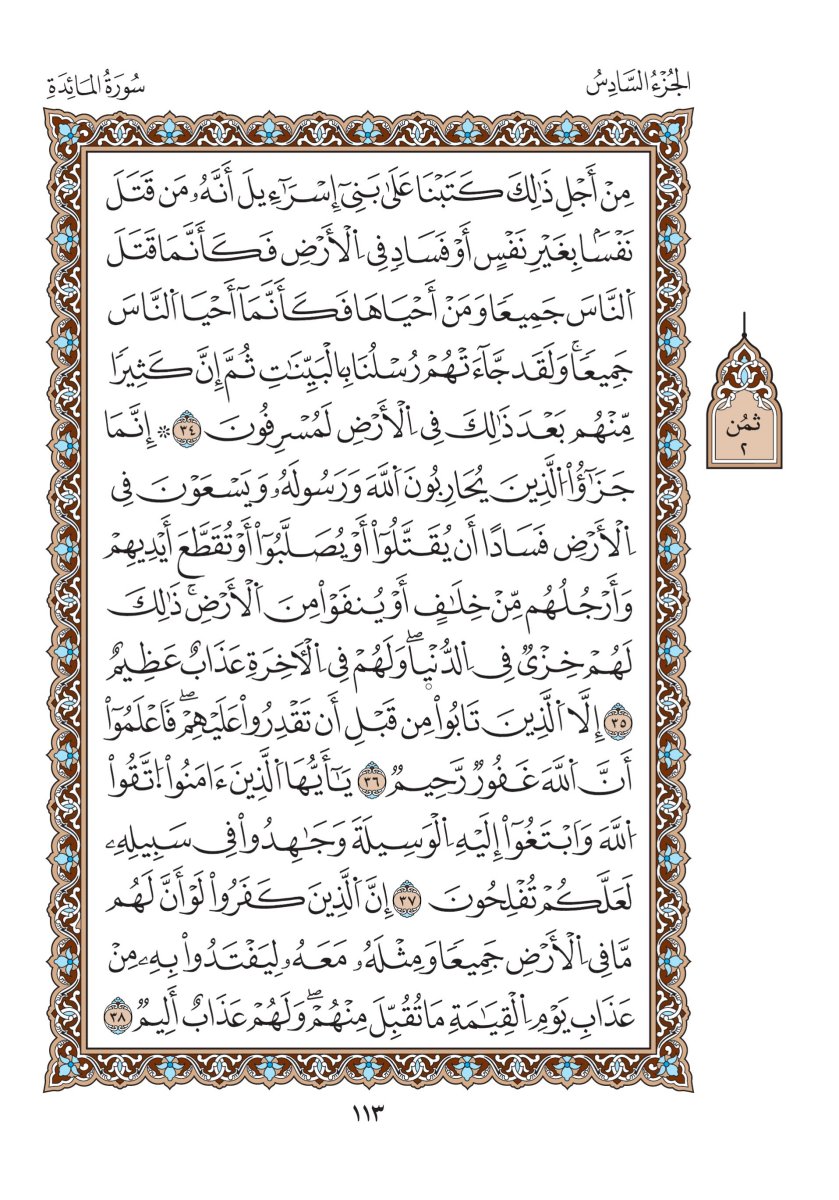 الجُزْءُ السَّادِسُ
سُورَةُ المَائِدَةِ
مِنْ أَجْلِ ذَٰلِكَ كَتَبْنَا عَلَىٰ بَنِىٓ إِسْرَآءِيلَ أَنَّهُۥ مَن قَتَلَ
نَفْسَۢا بِغَيْرِ نَفْسٍ أَوْ فَسَادٖ فِى اِ۬لْأَرْضِ فَكَأَنَّمَا قَتَلَ
اَ۬لنَّاسَ جَمِيعٗا وَمَنْ أَحْيَاهَا فَكَأَنَّمَآ أَحْيَا اَ۬لنَّاسَ
جَمِيعٗاۚ وَلَقَد جَّآءَتْهُمْ رُسْلُنَا بِالْبَيِّنَٰتِ ثُمَّ إِنَّ كَثِيرٗا
مِّنْهُم بَعْدَ ذَٰلِكَ فِى اِ۬لْأَرْضِ لَمُسْرِفُونَ ٣٤ ۞ إِنَّمَا
جَزَٰٓؤُاْ اُ۬لَّذِينَ يُحَارِبُونَ اَ۬للَّهَ وَرَسُولَهُۥ وَيَسْعَوْنَ فِى
اِ۬لْأَرْضِ فَسَادًا أَن يُقَتَّلُوٓاْ أَوْ يُصَلَّبُوٓاْ أَوْ تُقَطَّعَ أَيْدِيهِمْ
وَأَرْجُلُهُم مِّنْ خِلَٰفٍ أَوْ يُنفَوْاْ مِنَ اَ۬لْأَرْضِۚ ذَٰلِكَ
لَهُمْ خِزْىٞ فِى اِ۬لدُّنْيٜاۖ وَلَهُمْ فِى اِ۬لْأٓخِرَةِ عَذَابٌ عَظِيمٌ
٣٥ إِلَّا اَ۬لَّذِينَ تَابُواْ مِن قَبْلِ أَن تَقْدِرُواْ عَلَيْهِمْۖ فَاعْلَمُوٓاْ
أَنَّ اَ۬للَّهَ غَفُورٞ رَّحِيمٞ ٣٦ يَٰٓأَيُّهَا اَ۬لَّذِينَ ءَامَنُواْ اُ۪تَّقُواْ
اُ۬للَّهَ وَابْتَغُوٓاْ إِلَيْهِ اِ۬لْوَسِيلَةَ وَجَٰهِدُواْ فِى سَبِيلِهِۦ
لَعَلَّكُمْ تُفْلِحُونَ ٣٧ إِنَّ اَ۬لَّذِينَ كَفَرُواْ لَوْ أَنَّ لَهُم
مَّا فِى اِ۬لْأَرْضِ جَمِيعٗا وَمِثْلَهُۥ مَعَهُۥ لِيَفْتَدُواْ بِهِۦ مِنْ
عَذَابِ يَوْمِ اِ۬لْقِيَٰمَةِ مَا تُقُبِّلَ مِنْهُمْۖ وَلَهُمْ عَذَابٌ أَلِيمٞ ٣٨
ثُمُن
٢
١١٣